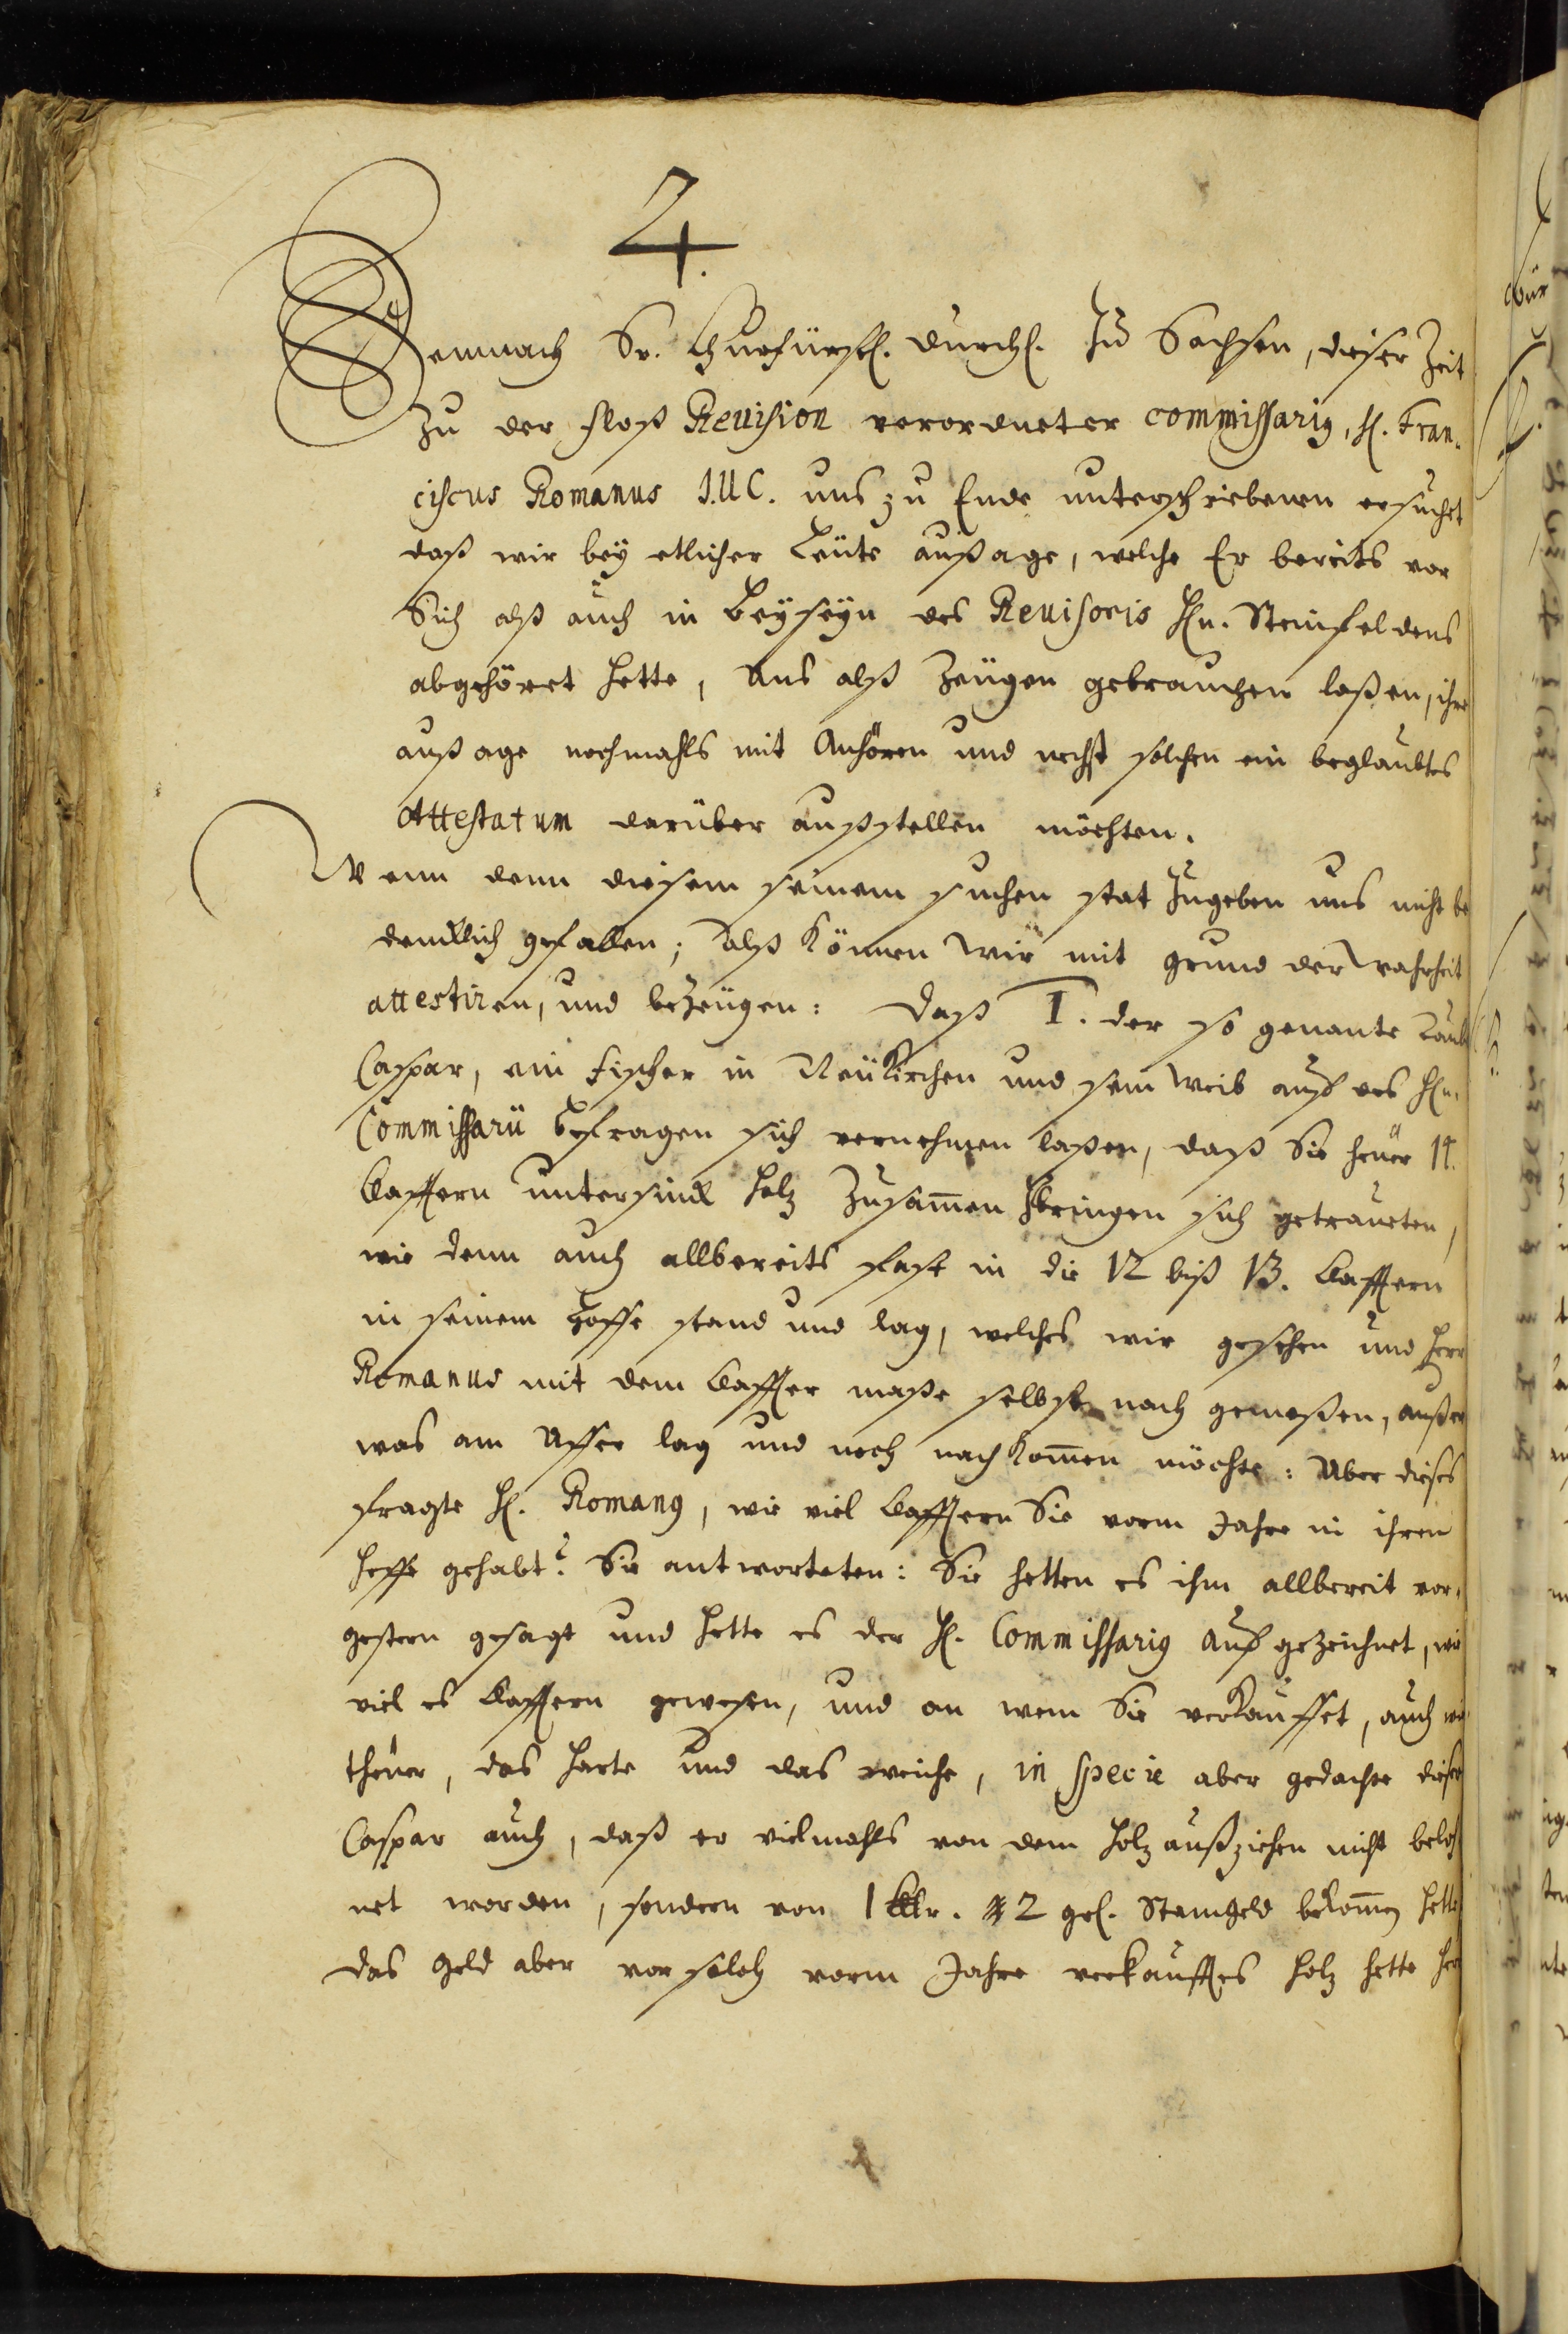 4.
Demnach Sr. Churfürstl. Durchl. Zu Sachsen, dieser Zeit
Zu der Floß Revision verordneter commissarius, H. Fran-
ciscus Romanus I.U.C. uns zu Ende unterschriebenen ersuchet
daß wir bey etlicher Leüte außage, welche Er bereits vor
Sich alß auch in Beyseyn des Revisoris Hn. Steinfeldens
abgehöret hette, Uns alß Zeügen gebrauchen laßen, ihre
außage nochmahls mit Anhören und nechst solchen ein beglaubtes
Attestatum darüber außstellen möchten.
Wenn denn diesem seinem suchen stat Zugeben uns nicht be
dencklich gefallen; Alß können wir mit grund der Wahrheit
attestiren, und beZeügen: Daß I. der so genante
Caspar, ein Fischer in Neükirchen und sein Weib auf des Hn.
Commissarii Befragen sich vernehmen laßen, daß Sie heüer 14.
Claftern untersinck Holz Zusam̅en Zbringen sich getraueten,
wie denn auch allbereits fast in die 12 biß 13. Claftern
in seinem Hoffe stand und lag, welches wir gesehen und Herr
Romanus mit dem Clafter maße selbst nach gemeßen, außer
was am Uffer lag und noch nach kom̅en möchte: Uber dieses
fragte H. Romanus, wie viel Claftern Sie vorm Jahre in ihren
Hoffe gehabt? Sie antworteten: Sie hetten es ihm allbereit vor-
gestern gesagt und hette es der H. Commissarius aufgezeichnet, wie
viel es Claftern gewesen, und an wem Sie verkauffet, auch wie
theüer, das harte und das weiche, in specie aber gedachte dieser
Caspar auch, daß er vielmahls von dem Holz außziehen nicht beloh
net worden, sondern von 1 Clftr. 2 gl. Stamgeld bekom̅en hette
das Geld aber vor solch vorm Jahre verkaufftes Holz hette Herr